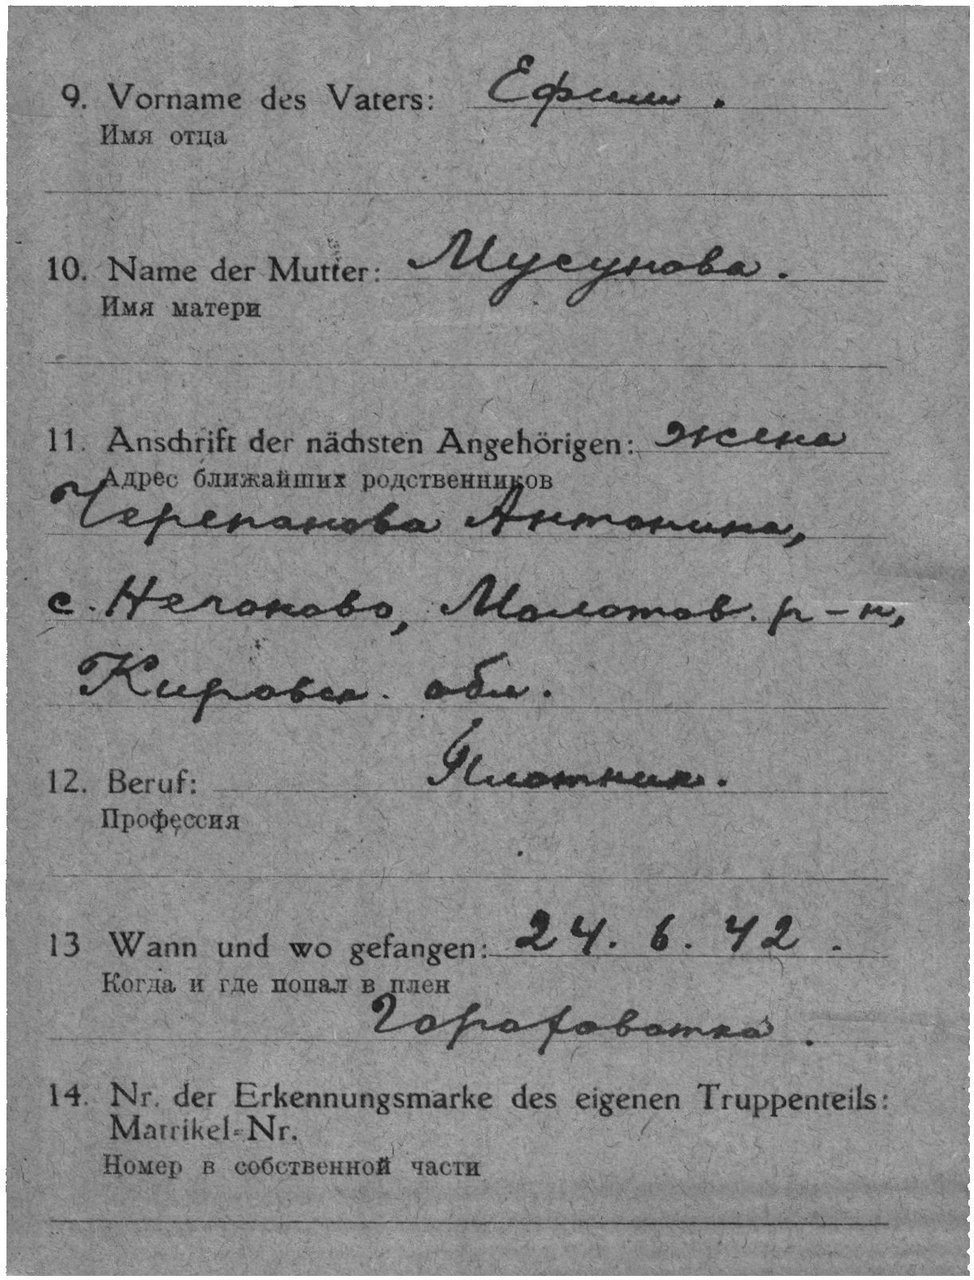 9. Vorname des Vaters: Ефим.
Имя отца
10. Name der Mutter: Мусунова.
Имя матери
11. Anschrift der nächsten Angehörigen: жена
Адрес ближайших родственников
Черепанова Антонина,
с. Молотов. р-н,
Кировск. обл.
12. Beruf: Плотник.
Профессия
13 Wann und wo gefangen: 24. 6. 42.
Когда и где попал в плен
14. Nr. der Erkennungsmarke des eigenen Truppenteils:
Matrikel-Nr.
Номер в собственной части